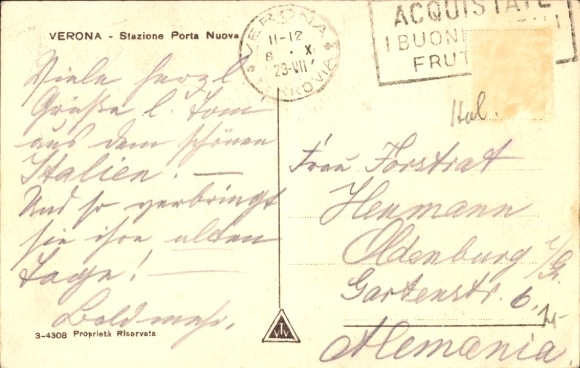 VERONA - Stazione Porta Nuova
Viele herzl.
Grüße l. Tom
aus dem schönen
Italien! —
Und so verbringt
sie ihre alten
Tage! —
3-4308 Proprietà Riservata
VERONA
11-12
8 · XI
23·VII
FERROVIA
ACQUISTATE
I BUONI
FRUT
Ital.
Frau Forstrat
Heumann
Oldenburg i/Gr.
Gartenstr. 6.
Alemania.